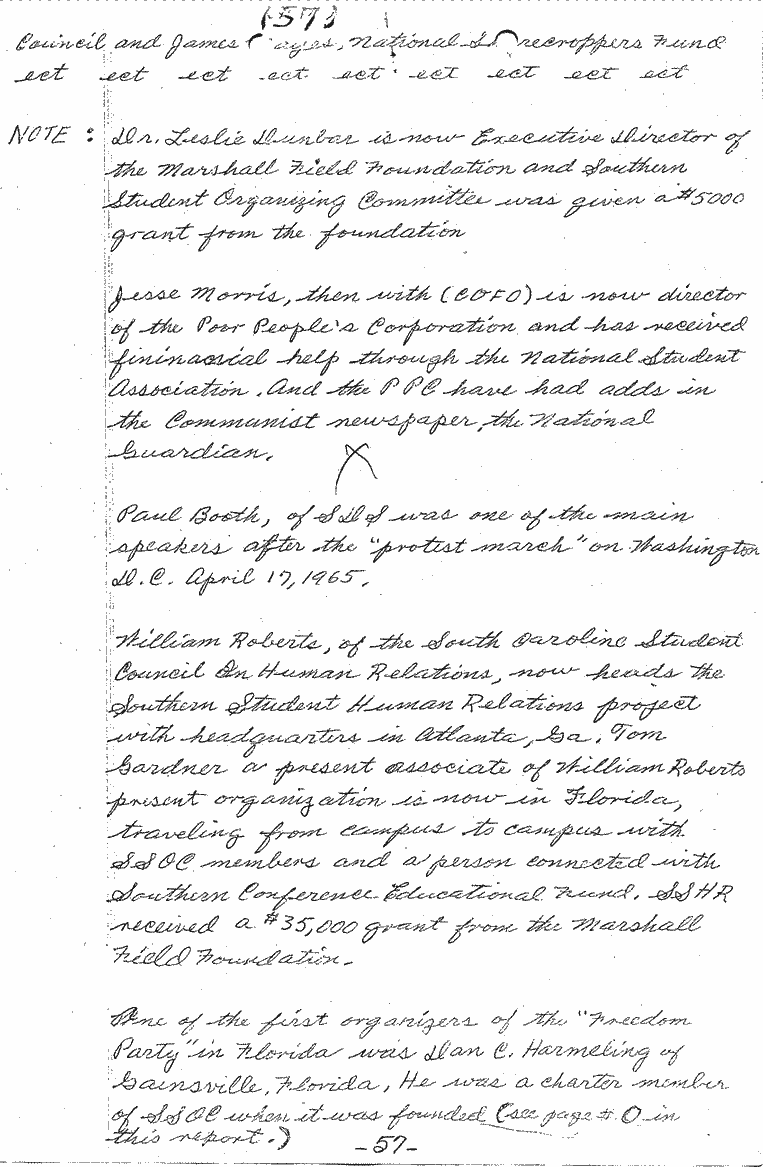 (57)
Council and James ayes, National Sharecroppers Fund
ect ect ect ect ect ect ect ect ect
NOTE : Dr. Leslie Dunbar is now Executive Director of
the Marshall Field Foundation and Southern
Student Organizing Committee was given a $5000
grant from the foundation
Jesse Morris, then with (COFO) is now director
of the Poor People's Corporation and has received
fininacial help through the National Student
Association. And the PPC have had adds in
the Communist newspaper, the National
Guardian.
Paul Booth, of SDS was one of the main
speakers after the "protest march" on Washington
D.C. April 17, 1965.
William Roberts, of the South Caroline Student
Council On Human Relations, now heads the
Southern Student Human Relations project
with headquarters in Atlanta, Ga. Tom
Gardner a present associate of William Roberts
present organization is now in Florida,
traveling from campus to campus with
SSOC members and a person connected with
Southern Conference Educational Fund. SSHR
received a $35,000 grant from the Marshall
Field Foundation.
One of the first organizers of the "Freedom
Party" in Florida was Dan C. Harmeling of
Gainsville, Florida, He was a charter member
of SSOC when it was founded (see page # 0 in
this report.)
-57-